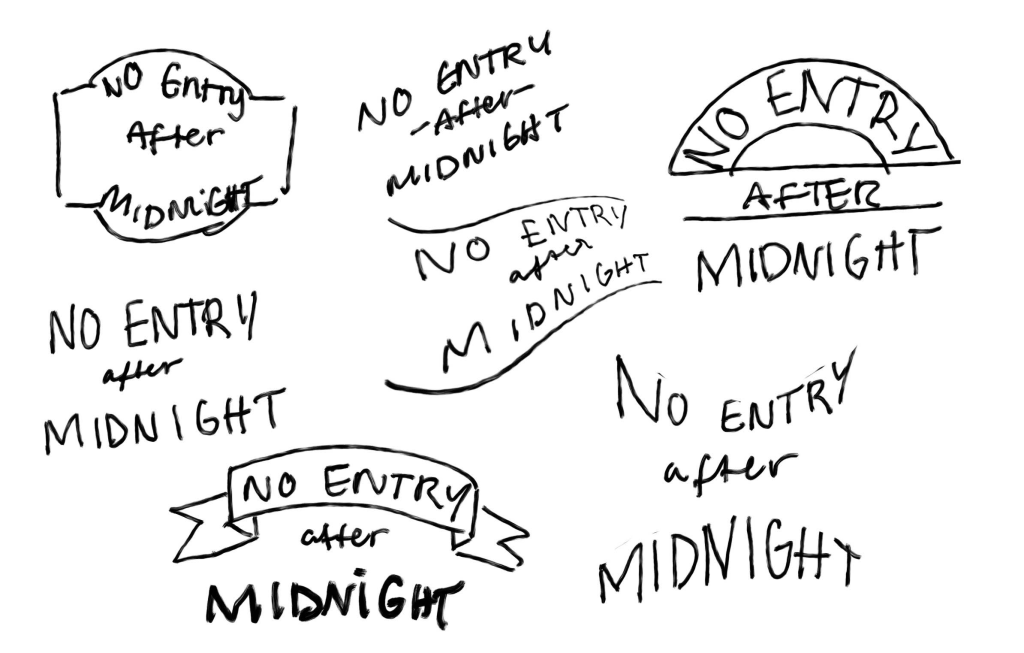 NO Entry
After
MIDNiGHT
NO ENTRY
-After-
MIDNIGHT
NO ENTRY
AFTER
MIDNIGHT
NO ENTRY
after
MIDNIGHT
NO ENTRY
after
MIDNIGHT
NO ENTRY
after
MIDNiGHT
No ENTRY
after
MIDNIGHT